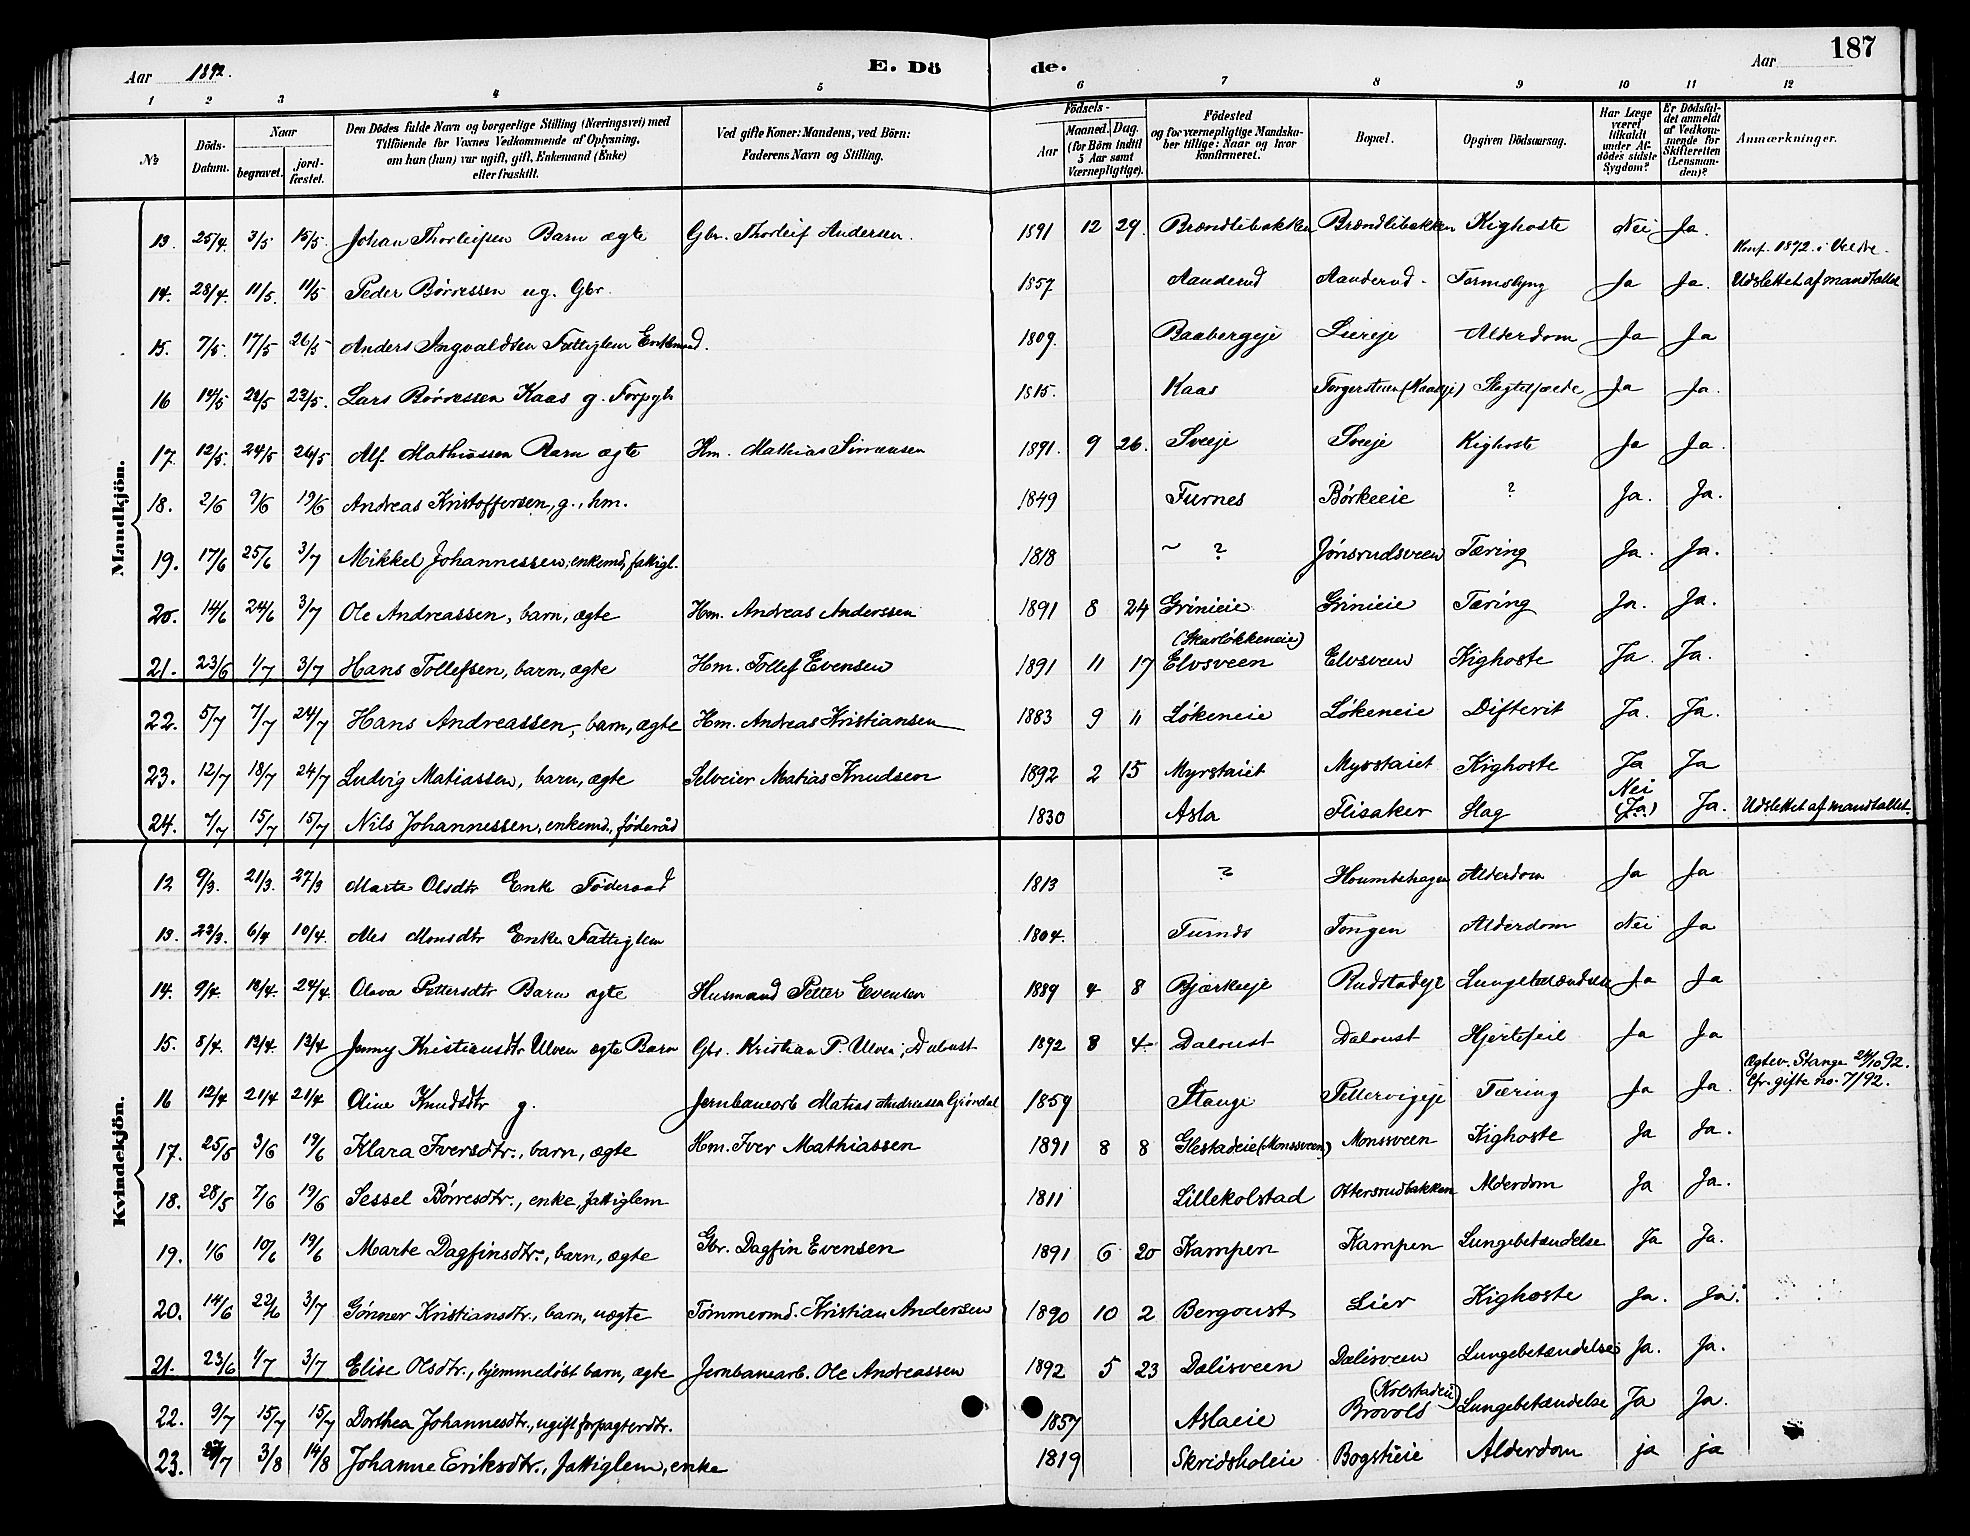 187
Aar 1892. E. Dö de. Aar
1 2 3 4 5 6 7 8 9 10 11 12
No
Döds-Datum.
Naar
begravet.
jord-fæstet.
Den Dödes fulde Navn og borgerlige Stilling (Næringsvei) med
Tilföiende for Voxnes Vedkommende af Oplysning,
om han (hun) var ugift, gift, Enkemand (Enke)
eller fraskilt.
Ved gifte Koner: Mandens, ved Börn:
Faderens Navn og Stilling.
Födsels-
Aar
Maaned. Dag.
(for Börn indtil
5 Aar samt
Værnepligtige).
Födested
og for værnepligtige Mandska-
ber tillige: Naar og hvor
konfirmeret.
Bopæl.
Opgiven Dödsaarsag.
Har Læge
været
tilkaldt
under Af-
dödes sidste
Sygdom?
Er Dödsfal-
det anmeldt
af Vedkom-
mende for
Skifteretten
(Lensman-
den)?
Anmærkninger.
Mandkjön.
13. 25/4. 3/5 15/5. Johan Thorleifsen Barn ægte Gbr. Thorleif Andersen. 1891 12 29. Brændlibakken Brændlibakken Kighoste Nei Ja.
Konf. 1872. i Veldre.
14. 28/4. 11/5. 11/5 Peder Börresen ug. Gbr. 1857 Aanderud Aanderud. Ja Ja. Udslettet af mandtallet
15. 7/5. 17/5 26/5 Anders Ingvaldsen Fattiglem Enkemand. 1809. Baabergeje Liereje Alderdom Ja Ja
16 14/5 22/5 22/5. Lars Börresen Kaas g. Forpgt. 1815. Kaas Torgersteen (Kaaseje) Ja Ja.
17. 12/5. 24/5 26/5 Alf Mathiassen Barn ægte Hm. Mathias Simensen 1891. 9 26. Sveeje Sveeje Kighoste Ja Ja.
18. 2/6 9/6 19/6 Andreas Kristoffersen, g., hm. 1849 Furnes Börkeeie ? Ja. Ja.
19. 17/6 25/6 3/7 Mikkel Johannessen, enkemd, fattigl. 1818 ~ ? Jönsrudsveen Tæring Ja. Ja.
20. 14/6 24/6 3/7 Ole Andreassen, barn, ægte Hm. Andreas Anderssen 1891 8 24 Grinieie Grinieie Tæring Ja. Ja.
(Skarlökkeneie)
21. 23/6 1/7 3/7 Hans Tollefsen, barn, ægte Hm. Tollef Evensen 1891 11 17 Elvsveen Elvsveen Kighoste Ja. Ja.
22. 5/7 7/7 24/7 Hans Andreassen, barn, ægte Hm. Andreas Kristiansen 1883 9 11 Lökeneie Lökeneie Difterit Ja. Ja.
23. 12/7 18/7 24/7 Ludvig Matiassen, barn, ægte Selveier Matias Knudsen 1892 2 15 Myrstaiet Myrstaiet Kighoste Ja Ja
24. 7/7 15/7 15/7 Nils Johannessen, enkemd., föderåd 1830 Asla Flisaker Slag Nei (Ja) Ja. Udslettet af mandtallet.
Kvindekjön.
12 9/3. 21/3. 27/3 Marte Olsdtr Enke Föderaad 1813 ? Alderdom Ja Ja
13. 23/3. 6/4 10/4. Ales Monsdtr Enke Fattiglem 1804. Furnes Tongen Alderdom Nei Ja
14. 9/4. 18/4. 24/4. Olava Pettersdtr Barn ægte Husmand Petter Evensen 1889 4 8 Bjærkeeje Rudstadeje Lungebetændelse Ja Ja
15. 8/4. 13/4. 13/4 Jenny Kristiansdtr Ulven ægte Barn Gbr. Kristian P. Ulven, Daloust 1892 8 4 Daloust Daloust Hjertefeil Ja Ja
Ægtev. Stange 24/10 92.
Cfr. gifte no. 7/92.
16 12/4 21/4 21/4 Oline Knudsdtr g. Jernbanearb Matias Andreasen Gröndal 1859 Stange Pettervigeje Tæring Ja Ja.
17. 25/5 3/6 19/6 Klara Iversdtr., barn, ægte Hm. Iver Mathiassen 1891 8 8 Glestadeie (Monssveen) Monssveen Kighoste Ja Ja.
18. 28/5 7/6 19/6 Sessel Börresdtr., enke, fattiglem 1811 Lillekolstad Ottersrudbakken Alderdom Ja Ja.
19. 1/6 10/6 19/6 Marte Dagfinsdtr., barn, ægte Gbr. Dagfin Evensen 1891 6 20 Kampen Kampen Lungebetændelse Ja Ja.
20. 14/6 22/6 3/7 Gönner Kristiansdtr., barn, uægte Tömmermd. Kristian Andersen 1890 10 2 Bergoust Lier Kighoste Ja. Ja.
21. 23/6 1/7 3/7 Elise Olsdtr., hjemmedöbt barn, ægte Jernbanearb. Ole Andreassen 1892 5 23 Dælisveen Dælisveen Lungebetændelse Ja. Ja.
22. 9/7 15/7 15/7 Dorthea Johannesdtr., ugift forpagterdtr. 1857 Aslaeie (Kolstadeie) Brovols Lungebetændelse Ja Ja.
23. 27/7 3/8 14/8 Johanne Eriksdtr., fattiglem, enke 1819 Skridsholeie Bogstieie Alderdom ja ja